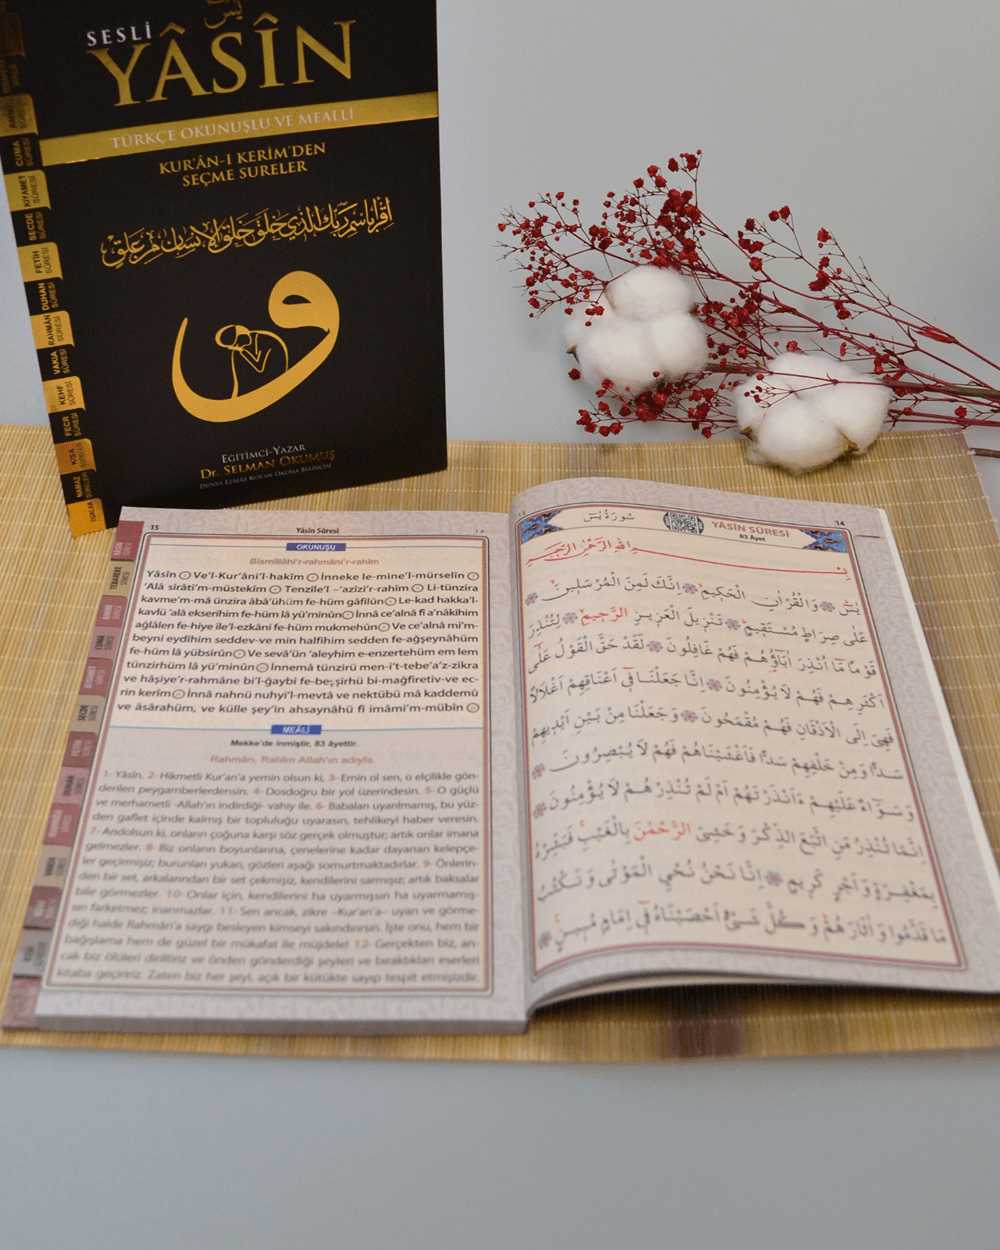 يٰسٓ
SESLİ
YÂSÎN
TÜRKÇE OKUNUŞLU VE MEALLİ
KUR'ÂN-I KERİM'DEN
SEÇME SURELER
اقرأ باسم ربك الذي خلق خلق الإنسان من علق
و
EĞİTİMCİ-YAZAR
Dr. SELMAN OKUMUŞ
DÜNYA EZBERE KUR'AN OKUMA BİRİNCİSİ
AMME SÛRESİ
CUMA SÛRESİ
KIYAMET SÛRESİ
SECDE SÛRESİ
FETİH SÛRESİ
DUHAN SÛRESİ
RAHMÂN SÛRESİ
VAKIA SÛRESİ
KEHF SÛRESİ
FECR SÛRESİ
KISA SÛRELER
NAMAZ SÛRELERİ
DUALAR
15 Yâsîn Sûresi ١٥
OKUNUŞU
Bismillâhi'r-rahmâni'r-rahîm
Yâsîn Ve'l-Kur'âni'l-hakîm İnneke le-mine'l-mürselîn
'Alâ sirâti'm-müstekîm Tenzîle'l-'azîzi'r-rahîm Li-tünzira
kavme'm-mâ ünzira âbâ'ühüm fe-hüm gâfilûn Le-kad hakka'l-
kavlü 'alâ ekserihim fe-hüm lâ yü'minûn İnnâ ce'alnâ fî a'nâkihim
ağlâlen fe-hiye ile'l-ezkâni fe-hüm mukmehûn Ve ce'alnâ mi'm-
beyni eydîhim seddev-ve min halfihim sedden fe-ağşeynâhüm
fe-hüm lâ yübsirûn Ve sevâ'ün 'aleyhim e-enzertehüm em lem
tünzirhüm lâ yü'minûn İnnemâ tünzirü men-i't-tebe'a'z-zikra
ve hâşiye'r-rahmâne bi'l-ğaybi fe-beşşirhü bi-mağfiretiv-ve ec-
rin kerîm İnnâ nahnü nuhyi'l-mevtâ ve nektübü mâ kaddemû
ve âsârahüm, ve külle şey'in ahsaynâhü fî imâmi'm-mübîn
MEÂLİ
Mekke'de inmiştir, 83 âyettir.
Rahmân, Rahîm Allah'ın adıyla.
1- Yâsîn. 2- Hikmetli Kur'an'a yemin olsun ki, 3- Emin ol sen, o elçilikle gön-
derilen peygamberlerdensin. 4- Dosdoğru bir yol üzerindesin. 5- O güçlü
ve merhametli -Allah'ın indirdiği- vahiy ile. 6- Babaları uyarılmamış, bu yüz-
den gaflet içinde kalmış bir topluluğu uyarasın, tehlikeyi haber veresin.
7- Andolsun ki, onların çoğuna karşı söz gerçek olmuştur; artık onlar imana
gelmezler. 8- Biz onların boyunlarına, çenelerine kadar dayanan kelepçe-
ler geçirmişiz; burunları yukarı, gözleri aşağı somurtmaktadırlar. 9- Önlerin-
den bir set, arkalarından bir set çekmişiz, kendilerini sarmışız; artık baksalar
bile görmezler. 10- Onlar için, kendilerini ha uyarmışsın ha uyarmamış-
sın farketmez; inanmazlar. 11- Sen ancak, zikre -Kur'an'a- uyan ve görme-
diği halde Rahmân'a saygı besleyen kimseyi sakındırırsın. İşte onu, hem bir
bağışlama hem de güzel bir mükafat ile müjdele! 12- Gerçekten biz, an-
cak biz ölüleri diriltiriz ve önden gönderdiği şeyleri ve bıraktıkları eserleri
kitaba geçiririz. Zaten biz her şeyi, açık bir kütükte sayıp tespit etmişizdir.
سُورَةُ يٰسٓ
YÂSÎN SÛRESİ
83 Âyet
14
بِسْمِ اللّٰهِ الرَّحْمٰنِ الرَّحِيمِ
يٰسٓ وَالْقُرْاٰنِ الْحَكِيمِ اِنَّكَ لَمِنَ الْمُرْسَلِينَ
عَلٰى صِرَاطٍ مُسْتَقِيمٍ تَنْزِيلَ الْعَزِيزِ الرَّحِيمِ لِتُنْذِرَ
قَوْمًا مَٓا اُنْذِرَ اٰبَٓاؤُ۬هُمْ فَهُمْ غَافِلُونَ لَقَدْ حَقَّ الْقَوْلُ عَلٰٓى
اَكْثَرِهِمْ فَهُمْ لَا يُؤْمِنُونَ اِنَّا جَعَلْنَا فِٓي اَعْنَاقِهِمْ اَغْلَالًا
فَهِيَ اِلَى الْاَذْقَانِ فَهُمْ مُقْمَحُونَ وَجَعَلْنَا مِنْ بَيْنِ اَيْدِيهِمْ
سَدًّا وَمِنْ خَلْفِهِمْ سَدًّا فَاَغْشَيْنَاهُمْ فَهُمْ لَا يُبْصِرُونَ
وَسَوَٓاءٌ عَلَيْهِمْ ءَاَنْذَرْتَهُمْ اَمْ لَمْ تُنْذِرْهُمْ لَا يُؤْمِنُونَ
اِنَّمَا تُنْذِرُ مَنِ اتَّبَعَ الذِّكْرَ وَخَشِيَ الرَّحْمٰنَ بِالْغَيْبِ فَبَشِّرْهُ
بِمَغْفِرَةٍ وَاَجْرٍ كَرِيمٍ اِنَّا نَحْنُ نُحْيِي الْمَوْتٰى وَنَكْتُبُ
مَا قَدَّمُوا وَاٰثَارَهُمْ وَكُلَّ شَيْءٍ اَحْصَيْنَاهُ فِٓي اِمَامٍ مُبِينٍ